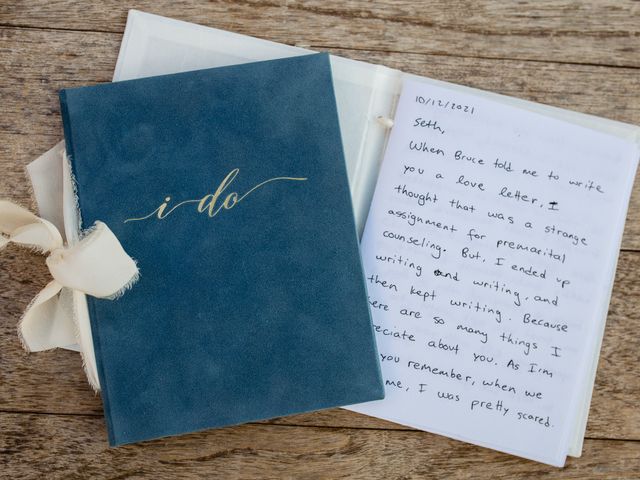 i do
10/12/2021
Seth,
When Bruce told me to write
you a love letter, I
thought that was a strange
assignment for premarital
counseling. But, I ended up
writing and writing, and
then kept writing. Because
there are so many things I
reciate about you. As I'm
you remember, when we
me, I was pretty scared.